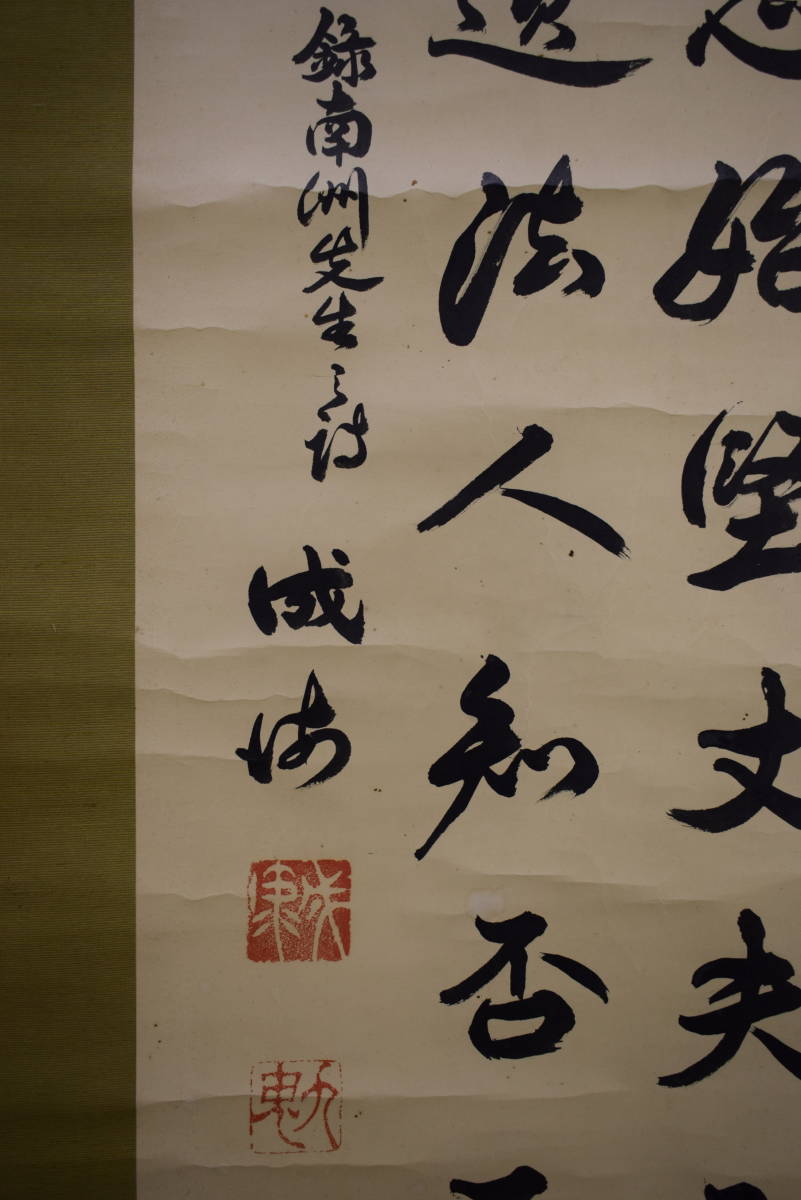 志始堅丈夫
遺法人知否不
錄南洲先生之詩
成
成